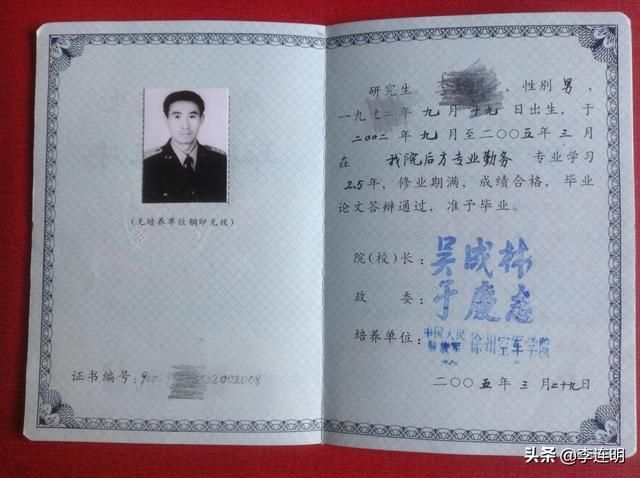 (无培养单位钢印无效)
证书编号:
2002008
研究生 , 性别 男,
一九七二年 九 月 十九 日出生, 于
二〇〇二 年 九 月至二〇〇五年 三 月
在 我院后方专业勤务 专业学习
2.5 年, 修业期满, 成绩合格, 毕业
论文答辩通过, 准予毕业。
院(校)长: 吴成林
政 委: 于慶志
培养单位: 中国人民解放军 徐州空军学院
二〇〇五 年 三 月二十九日
头条 @李连明